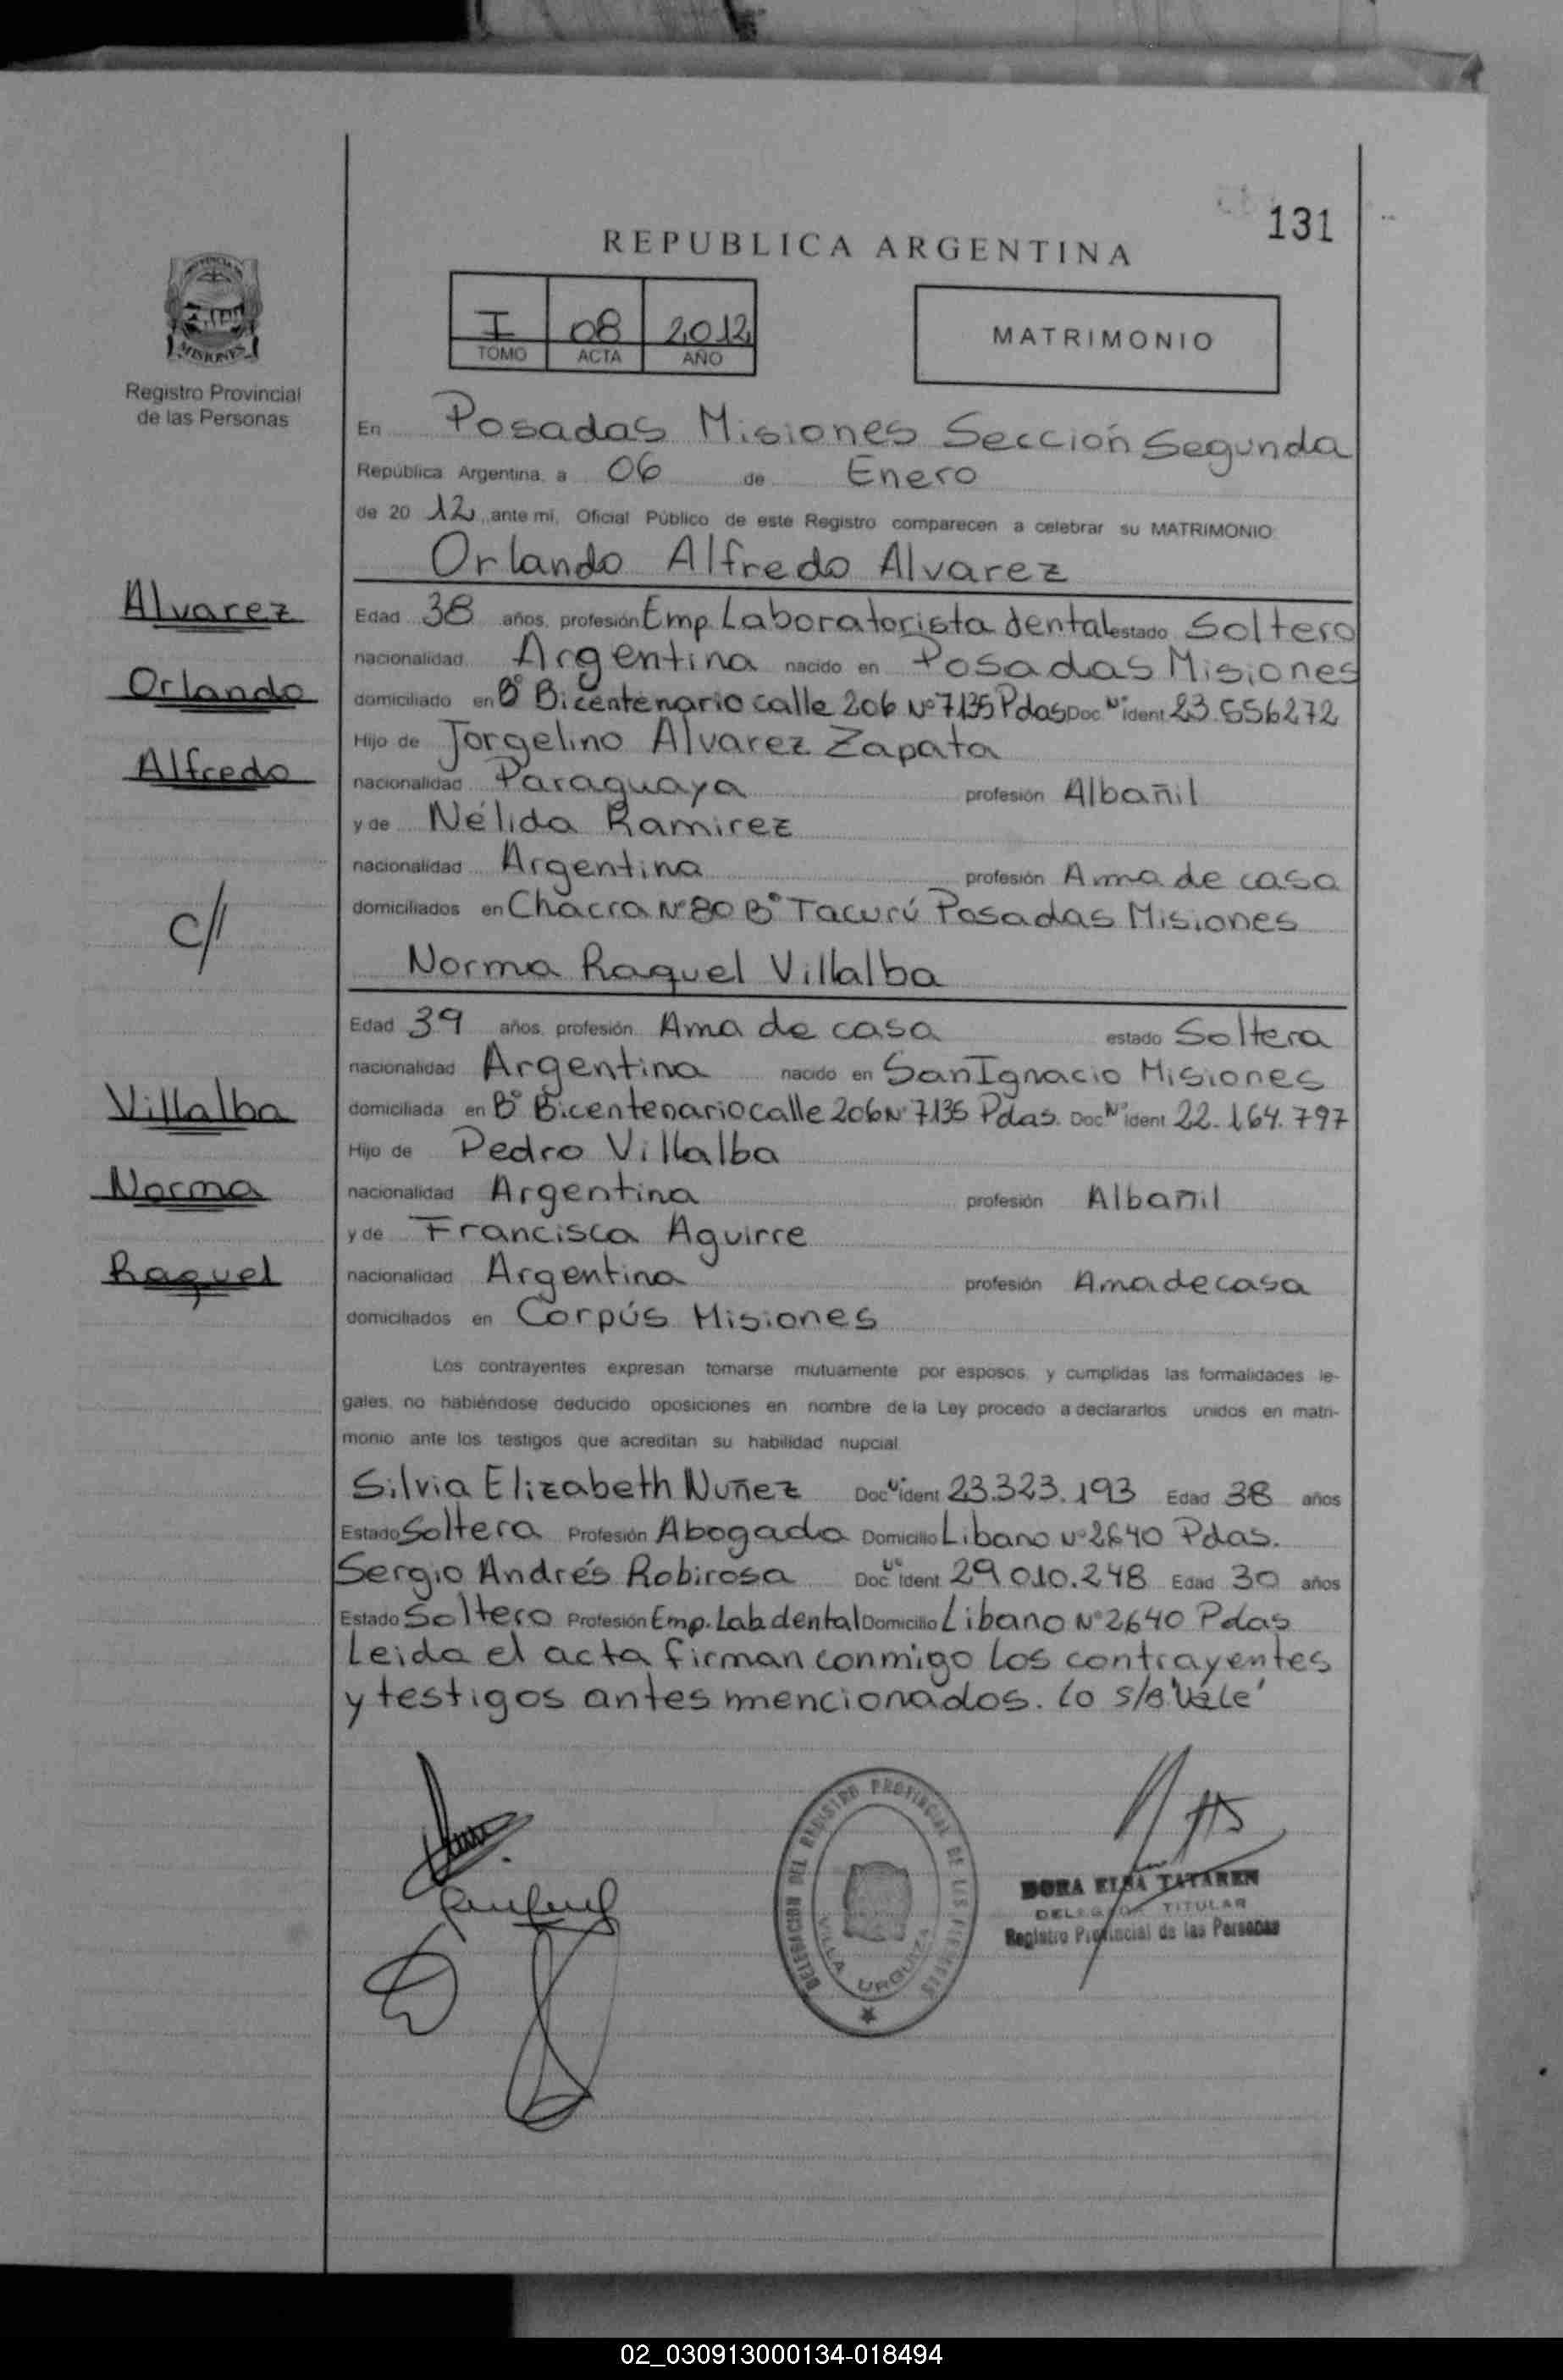 131
REPUBLICA ARGENTINA
I 08 2012
TOMO ACTA AÑO
MATRIMONIO
MISIONES
Registro Provincial
de las Personas
En Posadas Misiones Sección Segunda
República Argentina, a 06 de Enero
de 20 12, ante mí, Oficial Público de este Registro comparecen a celebrar su MATRIMONIO:
Orlando Alfredo Alvarez
Alvarez
Orlando
Alfredo
Edad 38 años, profesión Emp Laboratorista dental estado Soltero
nacionalidad Argentina nacido en Posadas Misiones
domiciliado en B° Bicentenario calle 206 N° 7135 Pdas Doc. N° ident 23.556272
Hijo de Jorgelino Alvarez Zapata
nacionalidad Paraguaya profesión Albañil
y de Nélida Ramirez
nacionalidad Argentina profesión Ama de casa
domiciliados en Chacra N° 80 B° Tacurú Posadas Misiones
c//
Norma Raquel Villalba
Villalba
Norma
Raquel
Edad 39 años, profesión Ama de casa estado Soltera
nacionalidad Argentina nacido en San Ignacio Misiones
domiciliada en B° Bicentenario calle 206 N° 7135 Pdas. Doc. N° ident 22.164.797
Hijo de Pedro Villalba
nacionalidad Argentina profesión Albañil
y de Francisca Aguirre
nacionalidad Argentina profesión Ama de casa
domiciliados en Corpús Misiones
Los contrayentes expresan tomarse mutuamente por esposos, y cumplidas las formalidades le-
gales, no habiéndose deducido oposiciones en nombre de la Ley procedo a declararlos unidos en matri-
monio ante los testigos que acreditan su habilidad nupcial
Silvia Elizabeth Nuñez Doc N° ident 23.323.193 Edad 38 años
Estado Soltera Profesión Abogada Domicilio Libano N° 2640 Pdas.
Sergio Andrés Robirosa Doc N° ident 29.010.248 Edad 30 años
Estado Soltero Profesión Emp. Lab dental Domicilio Libano N° 2640 Pdas
Leida el acta firman conmigo los contrayentes
y testigos antes mencionados. Lo s/B "Vale"
DELEGACION DEL REGISTRO PROVINCIAL DE LAS PERSONAS
VILLA URQUIZA
DORA ELBA TATAREN
DELEGADA TITULAR
Registro Provincial de las Personas
02_030913000134-018494